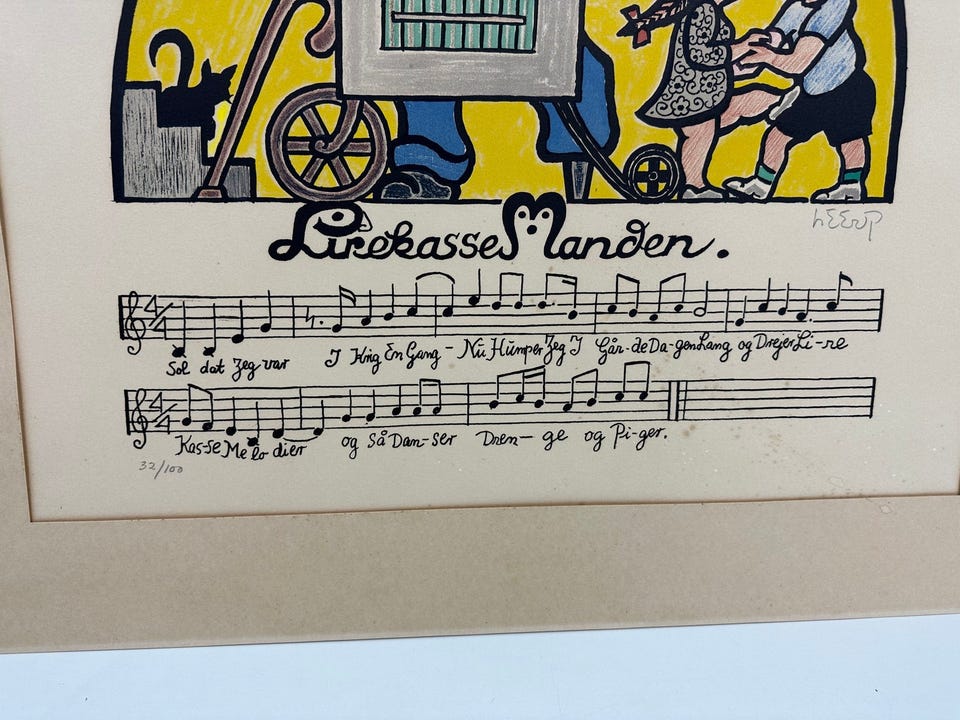 LEErUP
LirekasseManden.
4/4
Sol dat Jeg var I Krig En Gang - Nu Humper Jeg I Går-de Da-gen Lang og Drejer Li-re
4/4
Kas-se Me lo dier og Så Dan-ser Dren-ge og Pi-ger.
32/100